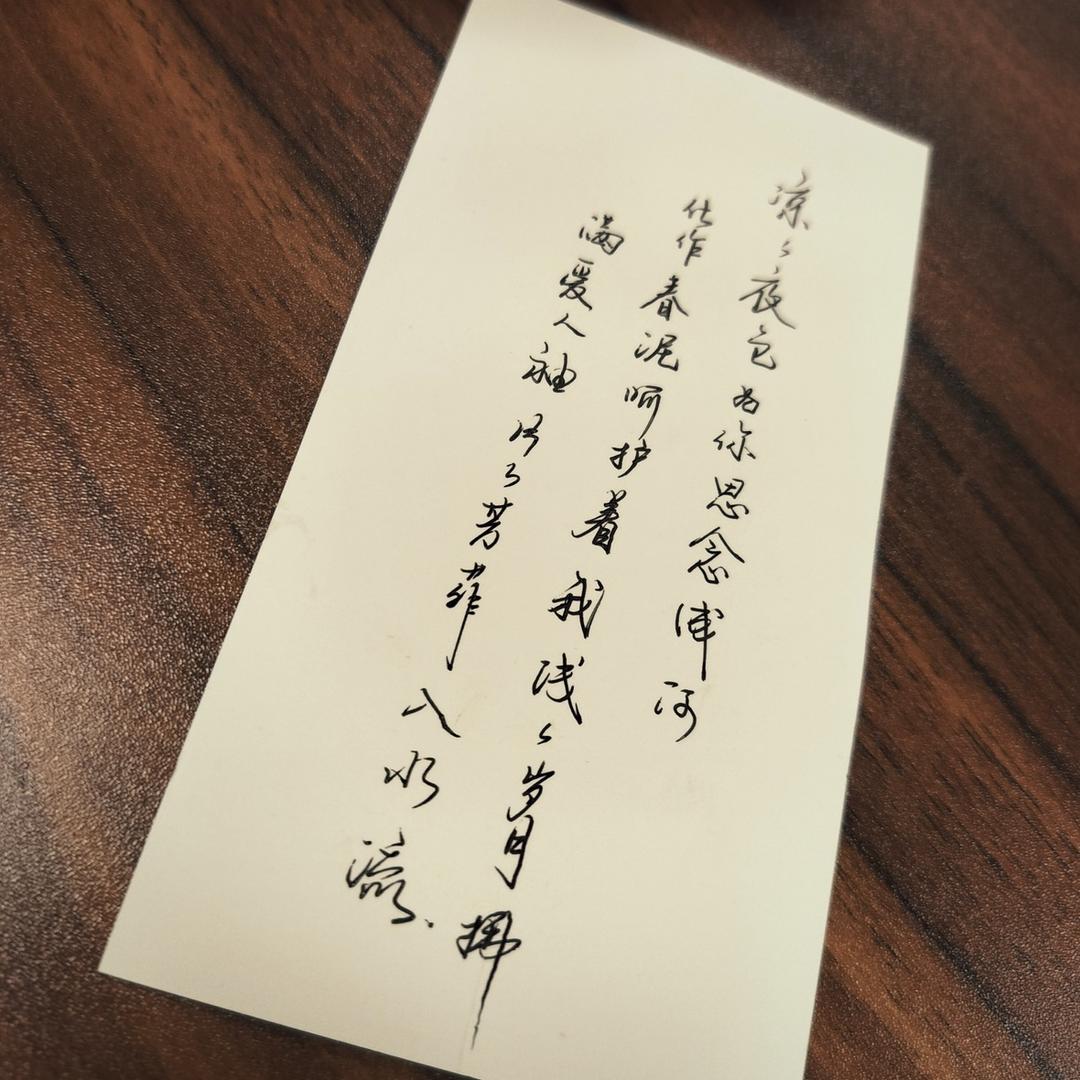 凉々夜色为你思念成河
化作春泥呵护着我浅々岁月拂
满爱人袖片々芳菲入水流.